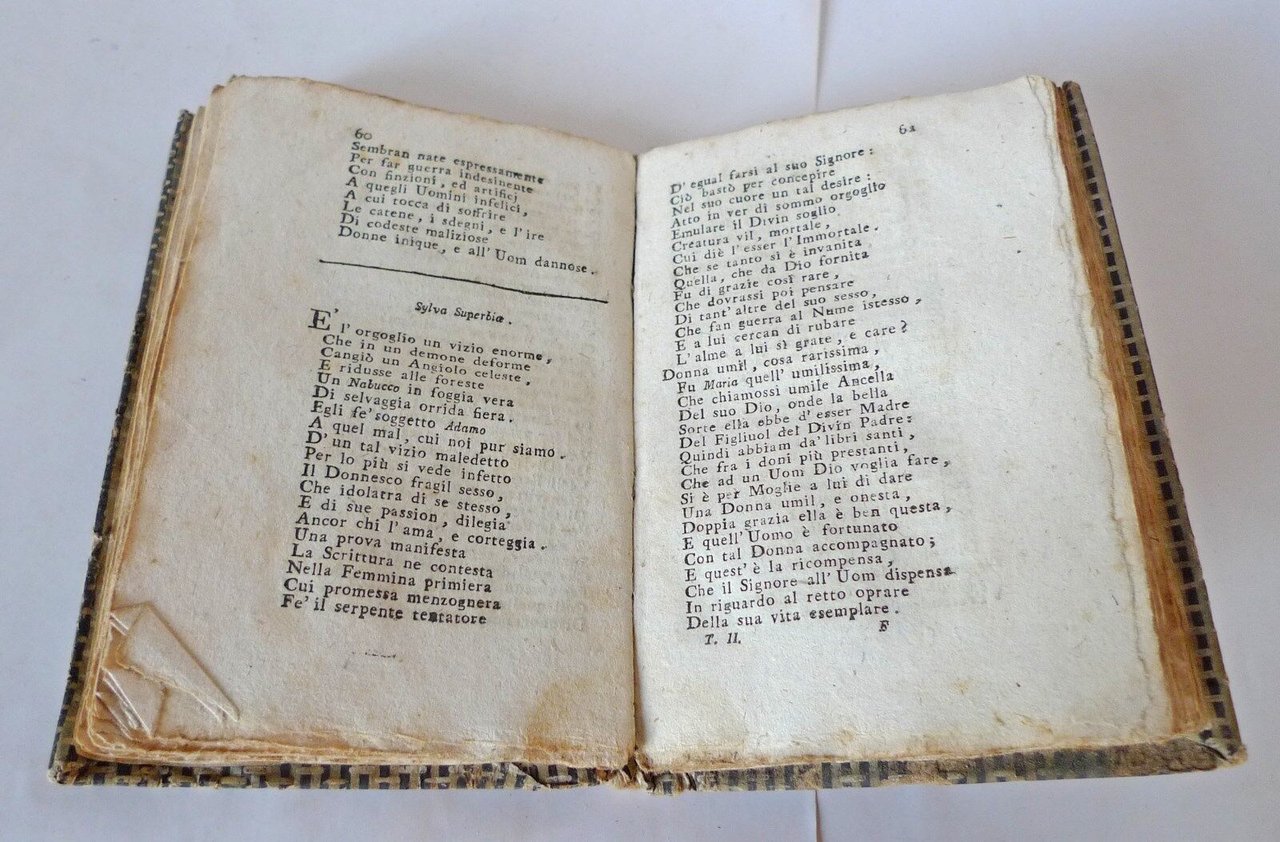 60
Sembran nate espressamente
Per far guerra indesinente
Con finzioni, ed artificj
A quegli Uomini infelici,
A cui tocca di soffrire
Le catene, i sdegni, e l'ire
Di codeste maliziose
Donne inique, e all'Uom dannose.
Sylva Superbiæ.
E' l'orgoglio un vizio enorme,
Che in un demone deforme
Cangiò un Angiolo celeste,
E ridusse alle foreste
Un Nabucco in foggia vera
Di selvaggia orrida fiera.
Egli fe' soggetto Adamo
A quel mal, cui noi pur siamo.
D'un tal vizio maledetto
Per lo più si vede infetto
Il Donnesco fragil sesso,
Che idolatra di se stesso,
E di sue passion, dilegia
Ancor chi l'ama, e corteggia.
Una prova manifesta
La Scrittura ne contesta
Nella Femmina primiera
Cui promessa menzognera
Fe' il serpente tentatore
61
D'egual farsi al suo Signore:
Ciò bastò per concepire
Nel suo cuore un tal desire:
Atto in ver di sommo orgoglio
Emulare il Divin soglio
Creatura vil, mortale,
Cui diè l'esser l'Immortale.
Che se tanto si è invanita
Quella, che da Dio fornita
Fu di grazie così rare,
Che dovrassi poi pensare
Di tant'altre del suo sesso,
Che fan guerra al Nume istesso,
E a lui cercan di rubare
L'alme a lui sì grate, e care?
Donna umil, cosa rarissima,
Fu Maria quell'umilissima,
Che chiamossi umile Ancella
Del suo Dio, onde la bella
Sorte ella ebbe d'esser Madre
Del Figliuol del Divin Padre:
Quindi abbiam da' libri santi,
Che fra i doni più prestanti,
Che ad un Uom Dio voglia fare,
Si è per Moglie a lui di dare
Una Donna umil, e onesta,
Doppia grazia ella è ben questa,
E quell'Uomo è fortunato
Con tal Donna accompagnato;
E quest'è la ricompensa,
Che il Signore all'Uom dispensa
In riguardo al retto oprare
Della sua vita esemplare.
T. II. F